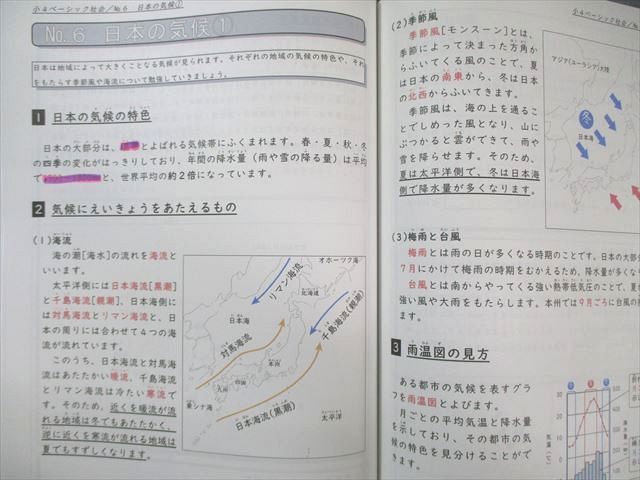 小4ベーシック社会/No.6 日本の気候①
No.6 日本の気候①
日本は地域によって大きくことなる気候が見られます。それぞれの地域の気候の特色や、それ
をもたらす季節風や海流について勉強していきましょう。
1 日本の気候の特色
日本の大部分は、温帯とよばれる気候帯にふくまれます。春・夏・秋・冬
の四季の変化がはっきりしており、年間の降水量(雨や雪の降る量)は平均
と、世界平均の約2倍になっています。
2 気候にえいきょうをあたえるもの
(1)海流
海の潮[海水]の流れを海流と
いいます。
太平洋側には日本海流[黒潮]
と千島海流[親潮]、日本海側に
は対馬海流とリマン海流と、日
本の周りには合わせて4つの海
流が流れています。
このうち、日本海流と対馬海
流はあたたかい暖流、千島海流
とリマン海流は冷たい寒流で
す。そのため、近くを暖流が流
れる地域は冬でもあたたかく、
逆に近くを寒流が流れる地域は
夏でもすずしくなります。
オホーツク海
リマン海流
北海道
日本海
千島海流(親潮)
対馬海流
本州
九州
四国
東シナ海
日本海流(黒潮)
太平洋
小4ベーシック社会/No
(2)季節風
季節風[モンスーン]とは、
季節によって決まった方角か
らふいてくる風のことで、夏
は日本の南東から、冬は日本
の北西からふいてきます。
季節風は、海の上を通るこ
とでしめった風となり、山に
ぶつかると雲ができて、雨や
雪を降らせます。そのため、
夏は太平洋側で、冬は日本海
側で降水量が多くなります。
アジア(ユーラシア)大陸
冬
日本海
(3)梅雨と台風
梅雨とは雨の日が多くなる時期のことです。日本の大部分
7月にかけて梅雨の時期をむかえるため、降水量が多くな
台風とは南からやってくる強い熱帯低気圧のことで、夏か
強い風や大雨をもたらします。本州では9月ごろに台風の
3 雨温図の見方
ある都市の気候を表すグラ
フを雨温図とよびます。
月ごとの平均気温と降水量
を示しており、その都市の気
候の特色を見分けることがで
きます。
気温(℃)
30
20
10
0